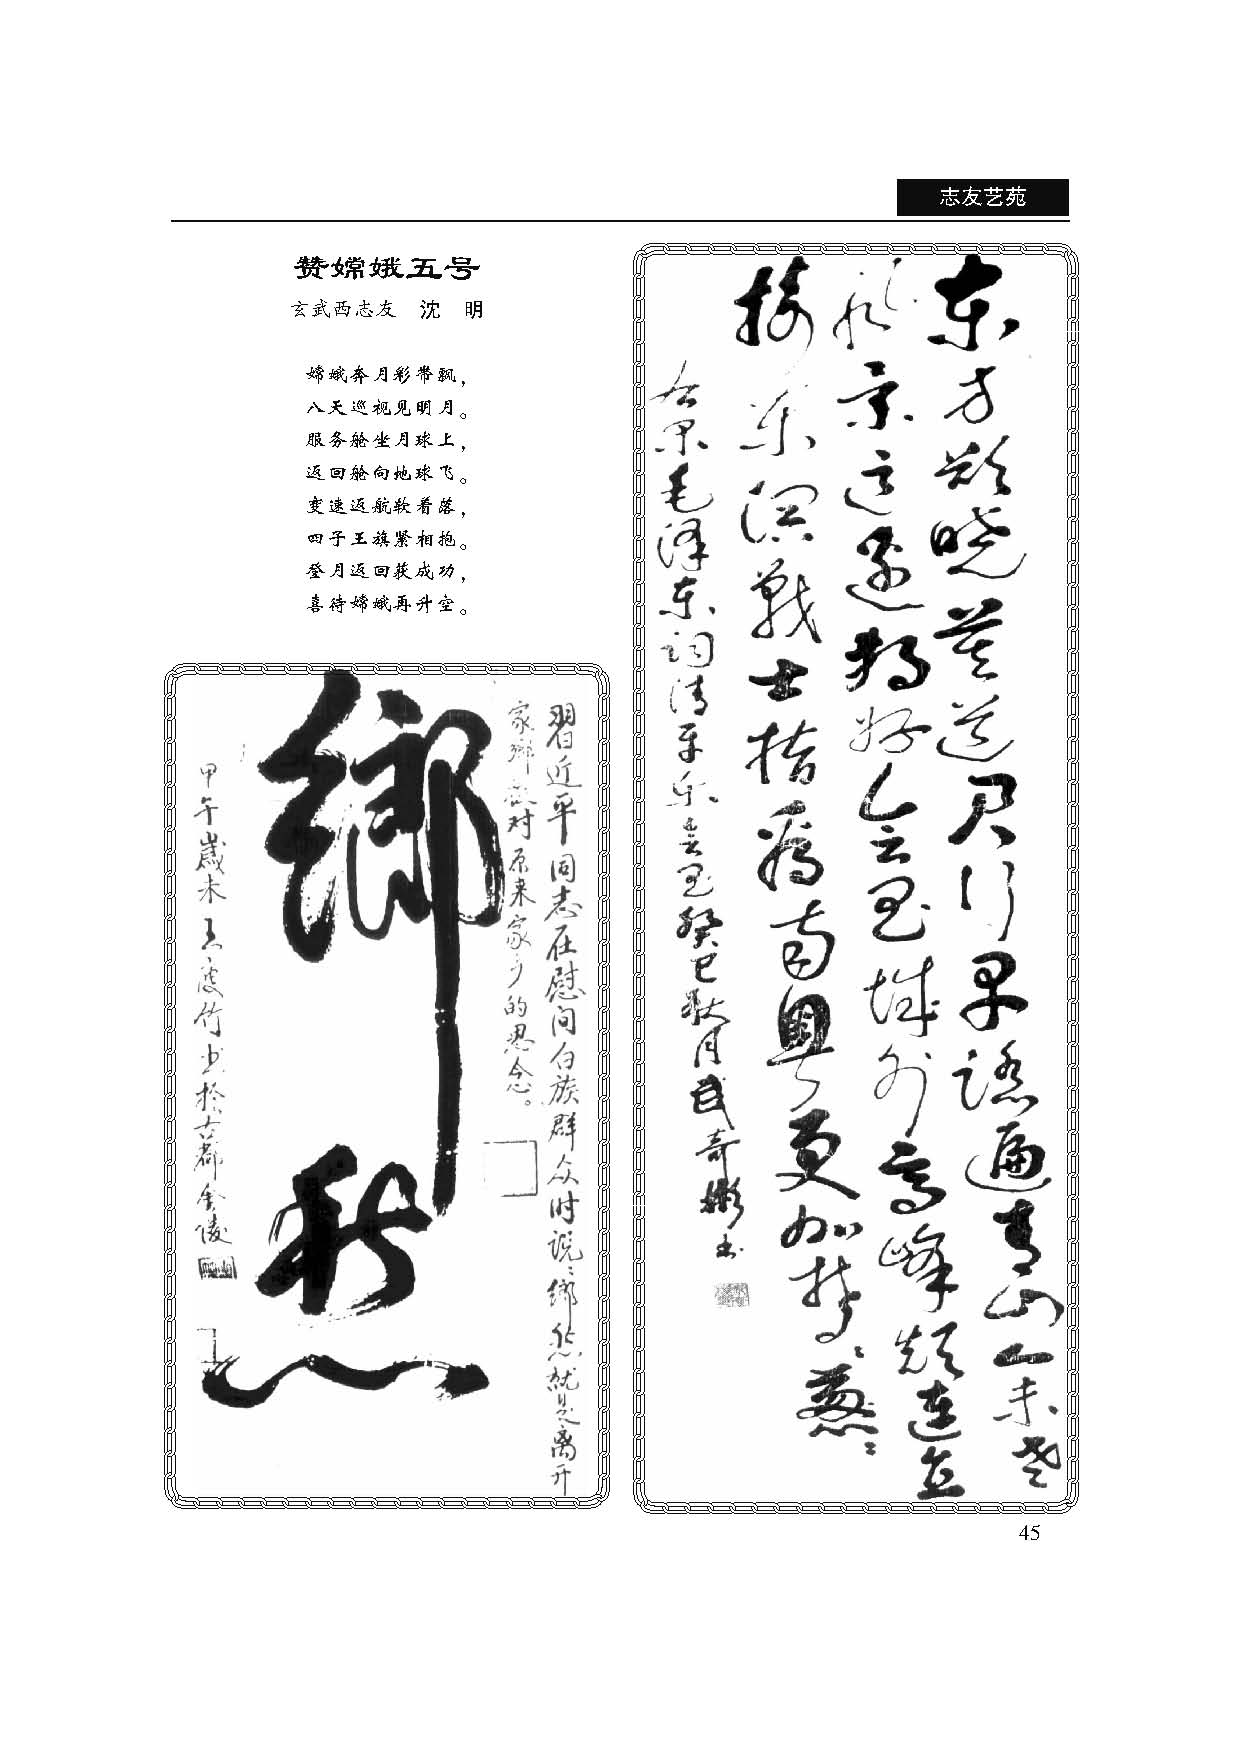 志友艺苑
赞嫦娥五号
玄武西志友 沈 明
嫦娥奔月彩带飘，
八天巡视见明月。
服务舱坐月球上，
返回舱向地球飞。
变速返航软着落，
四子王旗紧相抱。
登月返回获成功，
喜待嫦娥再升空。
东方欲晓莫道君行早踏遍青山人未老
风景这边独好会昌城外高峰颠连直
接东溟战士指看南粤更加郁〻葱〻
右录毛泽东词清平乐会昌癸巳秋月武奇彬书
習近平同志在慰问白族群众时说：鄉愁就是离开
家鄉後对原来家乡的思念。
鄉愁
甲午歲末王凌竹书於古都金陵
45